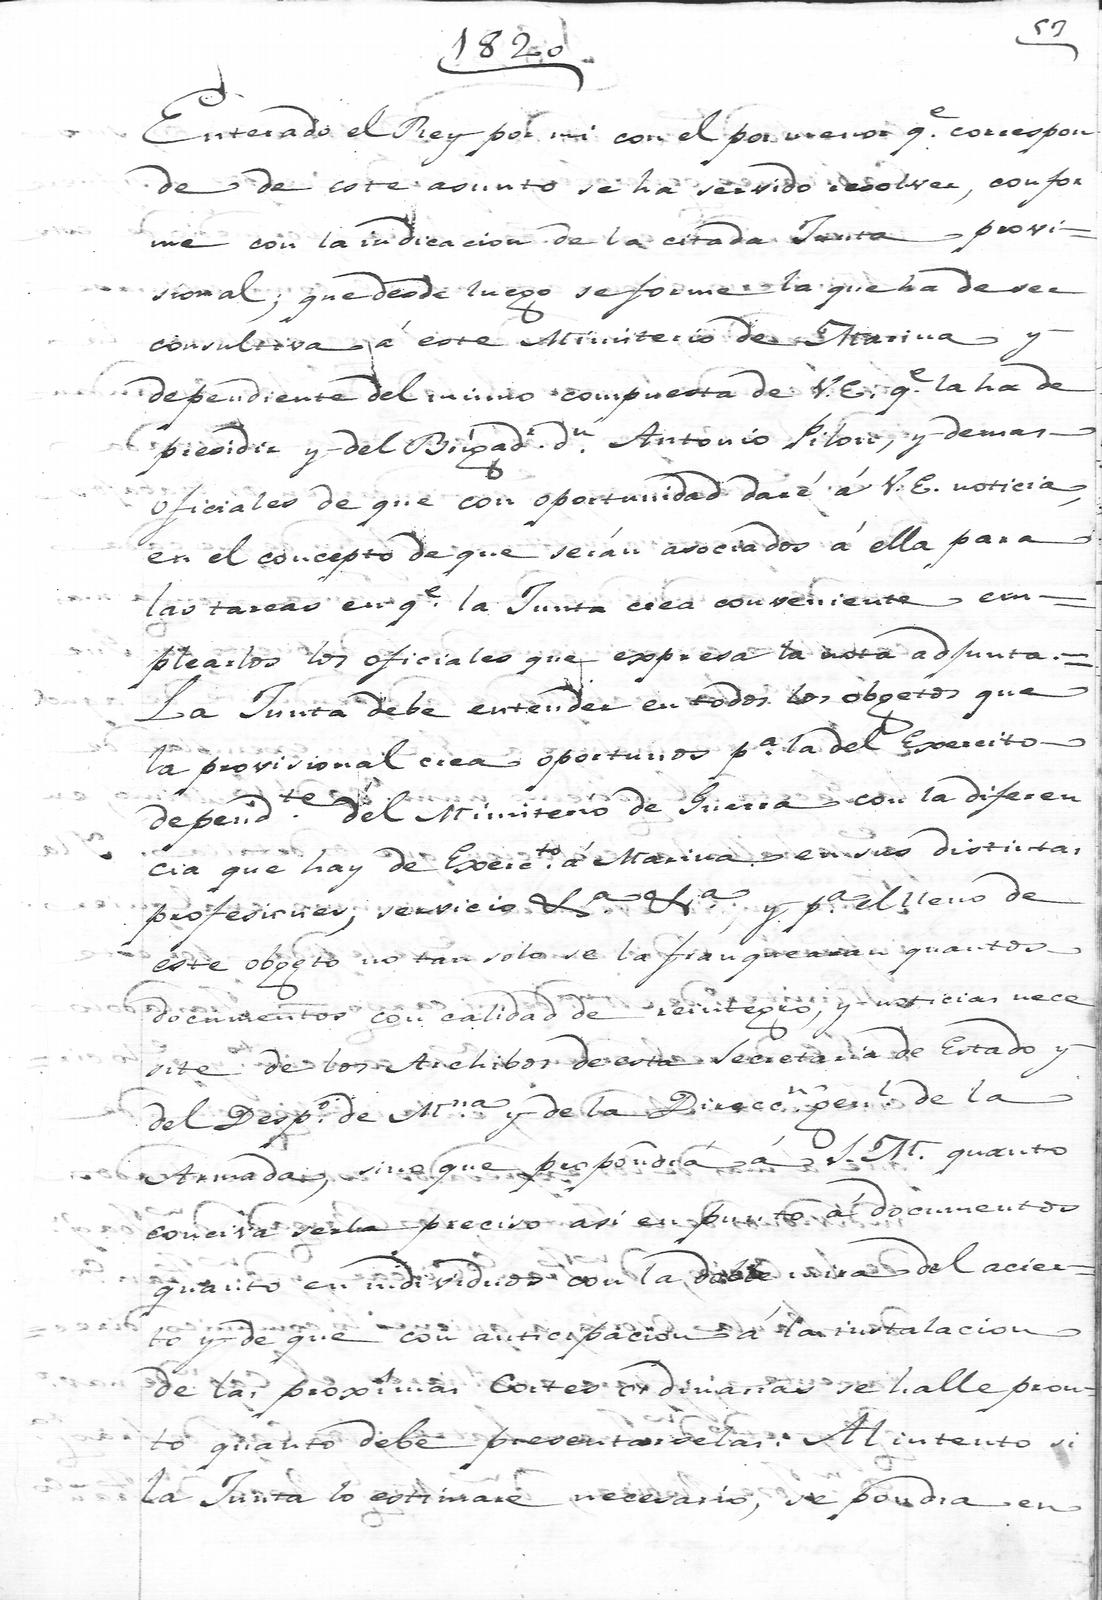 1820
57
Enterado el Rey por mi con el por menor q.e correspon
de de este asunto se ha servido resolver, confor
me con la indicacion de la citada Junta provi=
sional; que desde luego se forme la que ha de ser
consultiva á este Ministerio de Marina y
dependiente del mismo compuesta de V.E. q.e la ha de
presidir y del Brigad.r d.n Antonio Pilon, y demas
oficiales de que con oportunidad daré á V.E. noticia,
en el concepto de que serán asociados á ella para
las tareas en q.e la Junta crea conveniente em=
plearlos los oficiales que expresa la nota adjunta.=
La Junta debe entender en todos los obgetos que
la provisional crea oportunos p.a la del Exercito
depend.te del Ministerio de Guerra con la diferen
cia que hay de Exerc.to á Marina en sus distintas
profesiones, servicio &.a &.a y p.a el lleno de
este obgeto no tan solo se la franquearan quantos
documentos con calidad de reintegro, y noticias nece
site de los Archibos de esta Secretaria de Estado y
del Desp.o de M.na y de la Direcc.n gen.l de la
Armada, sino que propondrá á S.M. quanto
conciva serla preciso asi en punto á documentos
quanto en individuos con la doble mira del acier=
to y de que con anticipacion á la instalacion
de las proximas Cortes ordinarias se halle pron=
to quanto debe presentarselas. Al intento si
la Junta lo estimare necesario, se pondra en